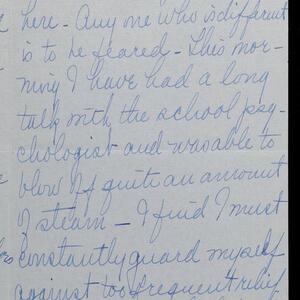 here - Any one who is different
is to be feared - This mor-
ning I have had a long
talk with the school psy-
chologist and was able to
blow off quite an amount
of steam - I find I must
constantly guard myself
against too frequent relief